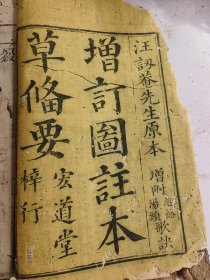 汪訒菴先生原本
增附
湯頭歌訣
增訂圖註本
草備要
宏道堂
梓行